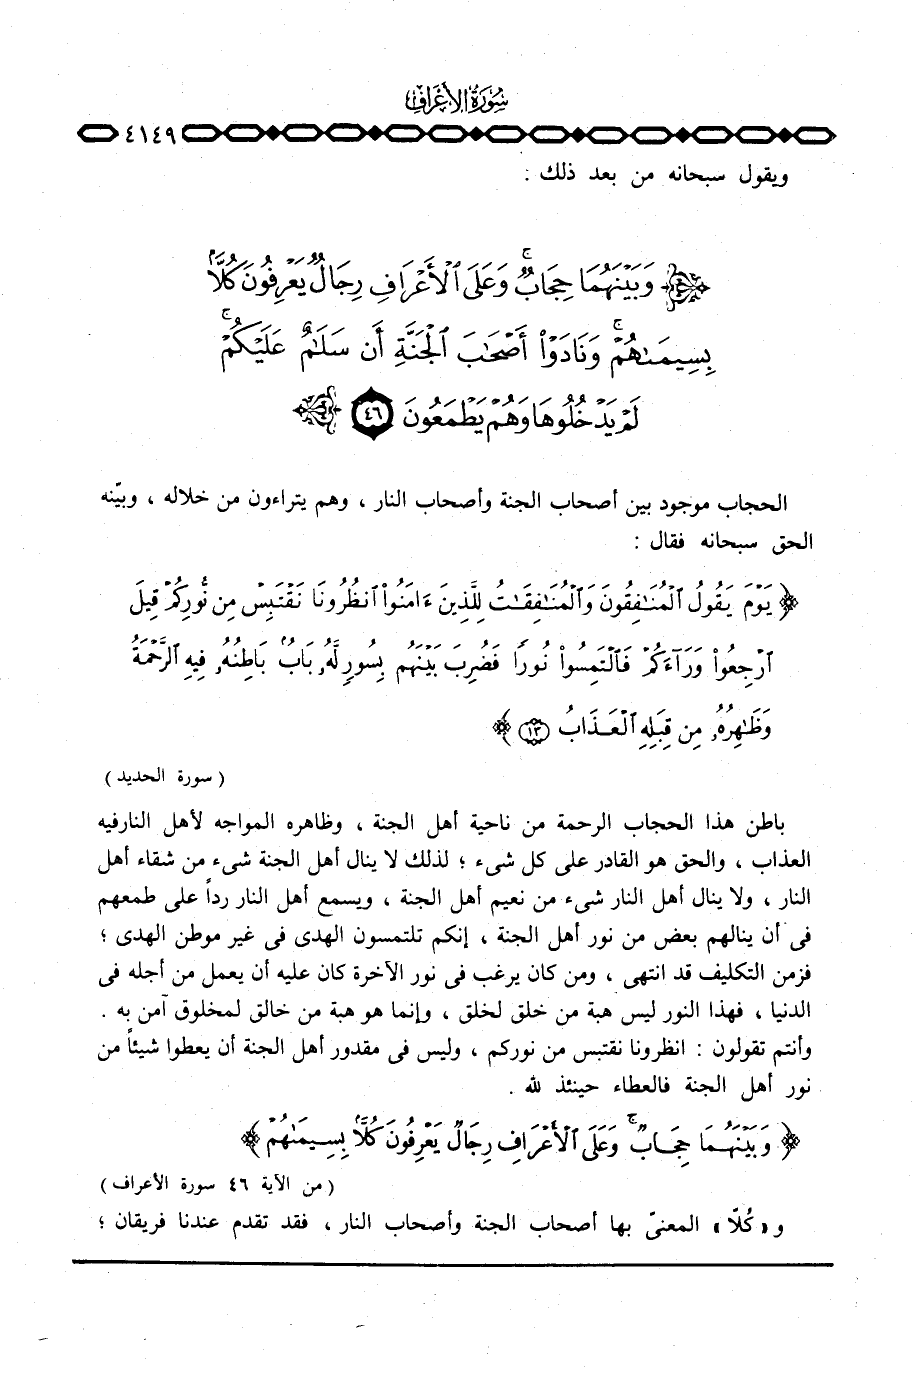 سورة الأعراف
٤١٤٩
ويقول سبحانه من بعد ذلك :
﴿ وَبَيْنَهُمَا حِجَابٌ ۚ وَعَلَى ٱلْأَعْرَافِ رِجَالٌ يَعْرِفُونَ كُلًّۢا
بِسِيمَىٰهُمْ ۚ وَنَادَوْا۟ أَصْحَٰبَ ٱلْجَنَّةِ أَن سَلَٰمٌ عَلَيْكُمْ ۚ
لَمْ يَدْخُلُوهَا وَهُمْ يَطْمَعُونَ ٤٦ ﴾
الحجاب موجود بين أصحاب الجنة وأصحاب النار ، وهم يتراءون من خلاله ، وبيّنه
الحق سبحانه فقال :
﴿ يَوْمَ يَقُولُ ٱلْمُنَٰفِقُونَ وَٱلْمُنَٰفِقَٰتُ لِلَّذِينَ ءَامَنُوا۟ ٱنظُرُونَا نَقْتَبِسْ مِن نُّورِكُمْ قِيلَ
ٱرْجِعُوا۟ وَرَآءَكُمْ فَٱلْتَمِسُوا۟ نُورًا فَضُرِبَ بَيْنَهُم بِسُورٍ لَّهُۥ بَابٌۢ بَاطِنُهُۥ فِيهِ ٱلرَّحْمَةُ
وَظَٰهِرُهُۥ مِن قِبَلِهِ ٱلْعَذَابُ ١٣ ﴾
( سورة الحديد )
باطن هذا الحجاب الرحمة من ناحية أهل الجنة ، وظاهره المواجه لأهل النارفيه
العذاب ، والحق هو القادر على كل شىء ؛ لذلك لا ينال أهل الجنة شىء من شقاء أهل
النار ، ولا ينال أهل النار شىء من نعيم أهل الجنة ، ويسمع أهل النار رداً على طمعهم
فى أن ينالهم بعض من نور أهل الجنة ، إنكم تلتمسون الهدى فى غير موطن الهدى ؛
فزمن التكليف قد انتهى ، ومن كان يرغب فى نور الآخرة كان عليه أن يعمل من أجله فى
الدنيا ، فهذا النور ليس هبة من خلق لخلق ، وإنما هو هبة من خالق لمخلوق آمن به .
وأنتم تقولون : انظرونا نقتبس من نوركم ، وليس فى مقدور أهل الجنة أن يعطوا شيئاً من
نور أهل الجنة فالعطاء حينئذ لله .
﴿ وَبَيْنَهُمَا حِجَابٌ ۚ وَعَلَى ٱلْأَعْرَافِ رِجَالٌ يَعْرِفُونَ كُلًّۢا بِسِيمَىٰهُمْ ﴾
( من الآية ٤٦ سورة الأعراف )
و « كُلّا » المعنىّ بها أصحاب الجنة وأصحاب النار ، فقد تقدم عندنا فريقان ؛